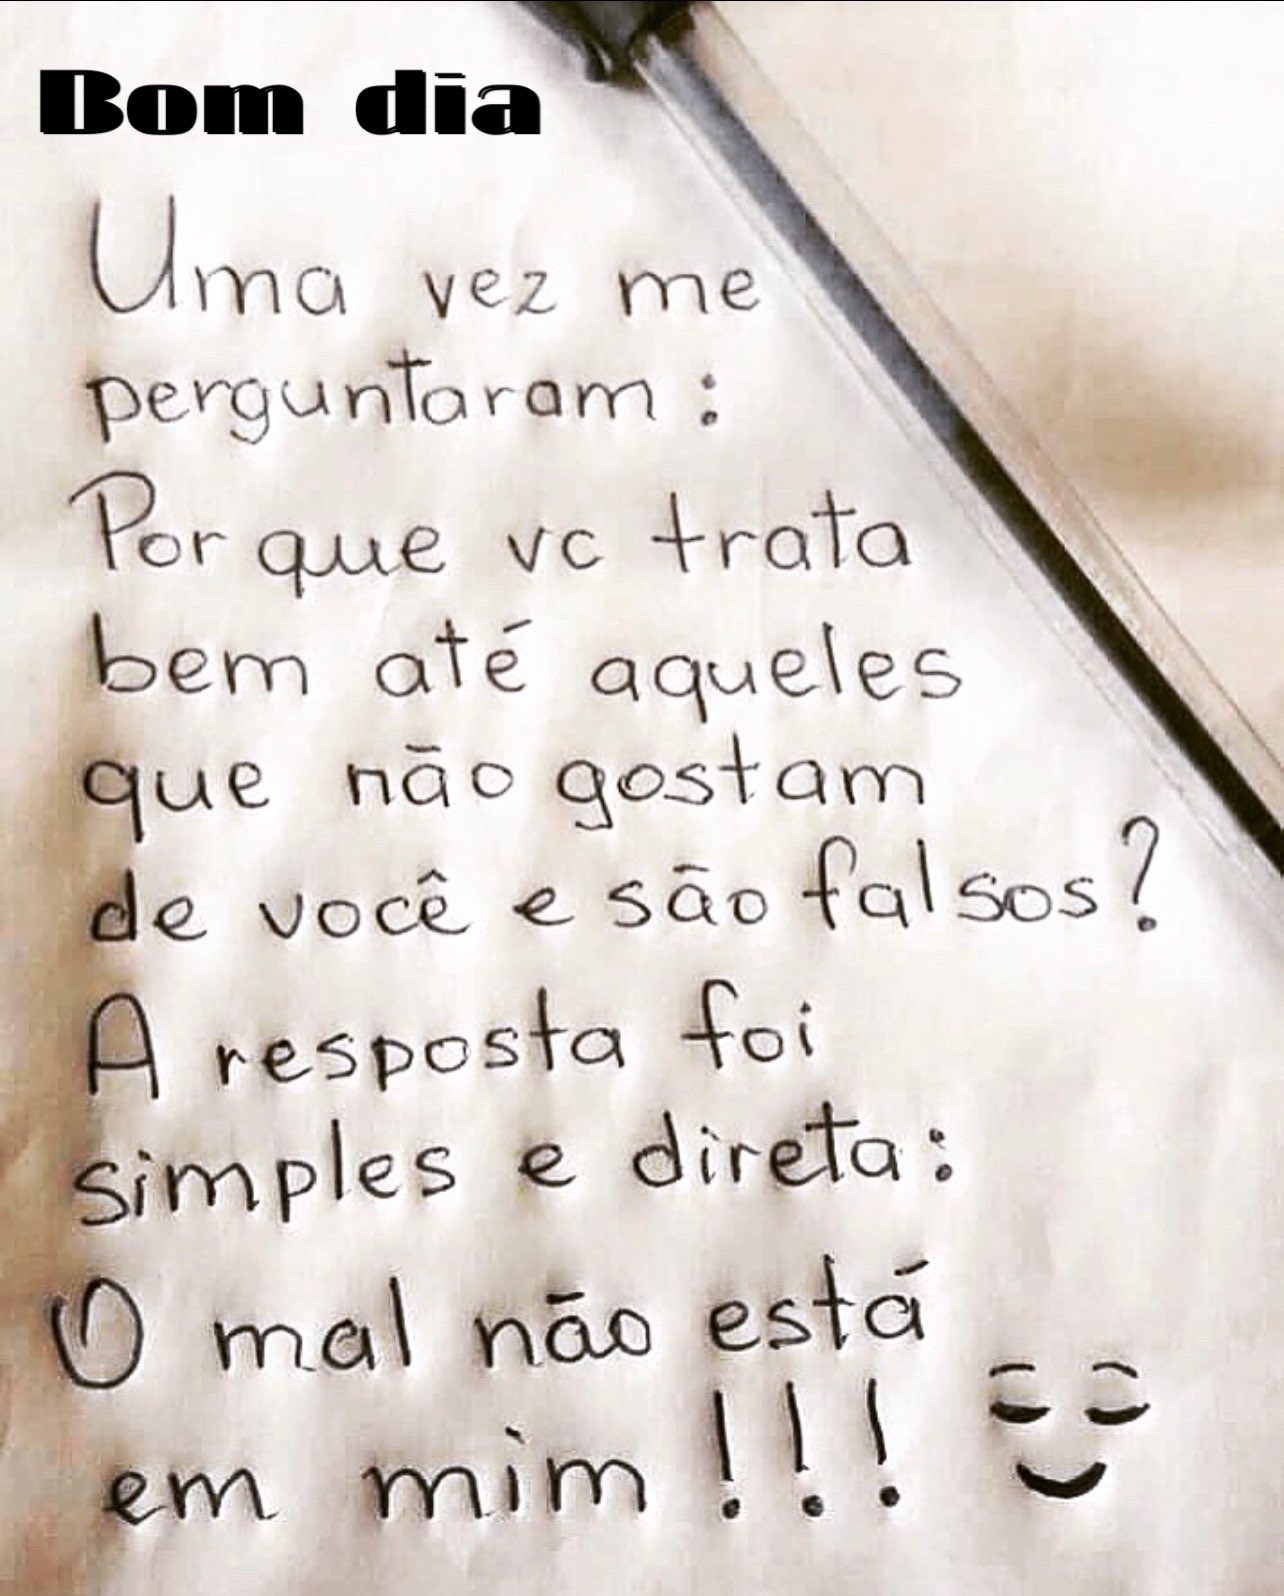 Bom dia
Uma vez me
perguntaram:
Por que vc trata
bem até aqueles
que não gostam
de você e são falsos?
A resposta foi
simples e direta:
O mal não está
em mim!!!